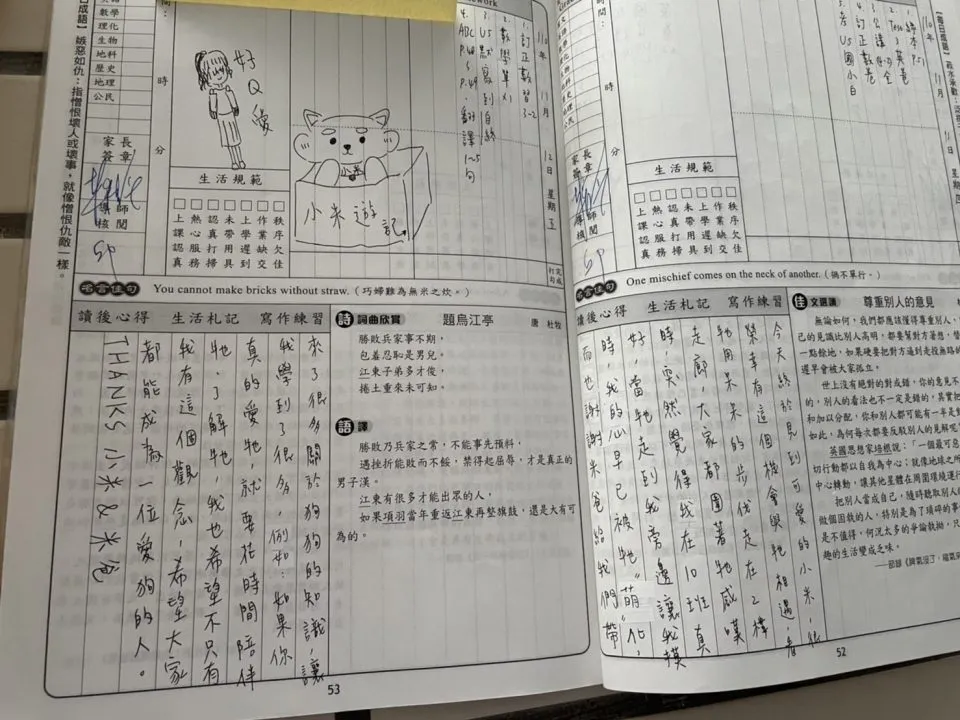 110年
11月
11日
星期四
時
分
家長
簽章
導師
核閱
生活規範
上課認真
熱心服務
認真打掃
未帶用具
上學遲到
作業缺交
秩序欠佳
One mischief comes on the neck of another.（禍不單行。）
名言佳句
讀後心得 生活札記 寫作練習
今天終於見到可愛的小米,很
榮幸有這個機會與牠相遇,看
牠用呆呆的步伐走在2樓
走廊,大家都圍著牠感嘆
時,突然覺得我在10班真
好,當牠走到我旁邊讓我摸
時,我的心早已被牠"萌"化,
而也謝謝米爸給我們帶
佳 文選讀 尊重別人的意見
無論如何，我們都應該懂得尊重別人，
己的見識比別人高明，都要幫對方著想，
一點餘地，如果硬要把對方逼到走投無路的
遲早會被大家孤立。
世上沒有絕對的對或錯，你的意見不
的，別人的看法也不一定是錯的，其實把
和加以分配，你和別人都可能有一半是對
如此，為何每次都要反駁別人的見解呢
英國思想家培根說：「一個最可惡
切行動都以自我為中心；就像地球之所
中心轉動，讓其他星體在周圍環境運行
把別人當成自己，隨時聽取別人的
做個固執的人，特別是為了瑣碎的事
是不值得，何況太多的爭論執拗，只
趣的生活變成乏味。
52
【每日成語】
數學
理化
生物
地科
歷史
地理
公民
時
分
家長
簽章
導師
核閱
【每日成語】嫉惡如仇：指憎恨壞人或壞事，就像憎恨仇敵一樣。
110年
11月
12日
星期五
1. 訂正數習3-2
2. 數學單x1
4. ABC P.48、P.49
翻譯1~5句
好Q愛
小米遊記
生活規範
上課認真
熱心服務
認真打掃
未帶用具
上學遲到
作業缺交
秩序欠佳
名言佳句
You cannot make bricks without straw.（巧婦難為無米之炊。）
讀後心得 生活札記 寫作練習
來了很多關於狗狗的知識,讓
我學到了很多,例如:如果你
真的愛牠,就要花時間陪伴
牠、了解牠,我也希望不只有
我有這個觀念,希望大家
都能成為一位愛狗的人。
THANKS 小米&米爸
詩 詞曲欣賞 題烏江亭 唐 杜牧
勝敗兵家事不期，
包羞忍恥是男兒。
江東子弟多才俊，
捲土重來未可知。
語 譯
勝敗乃兵家之常，不能事先預料，
遇挫折能敗而不餒，禁得起屈辱，才是真正的
男子漢。
江東有很多才能出眾的人，
如果項羽當年重返江東再整旗鼓，還是大有可
為的。
53